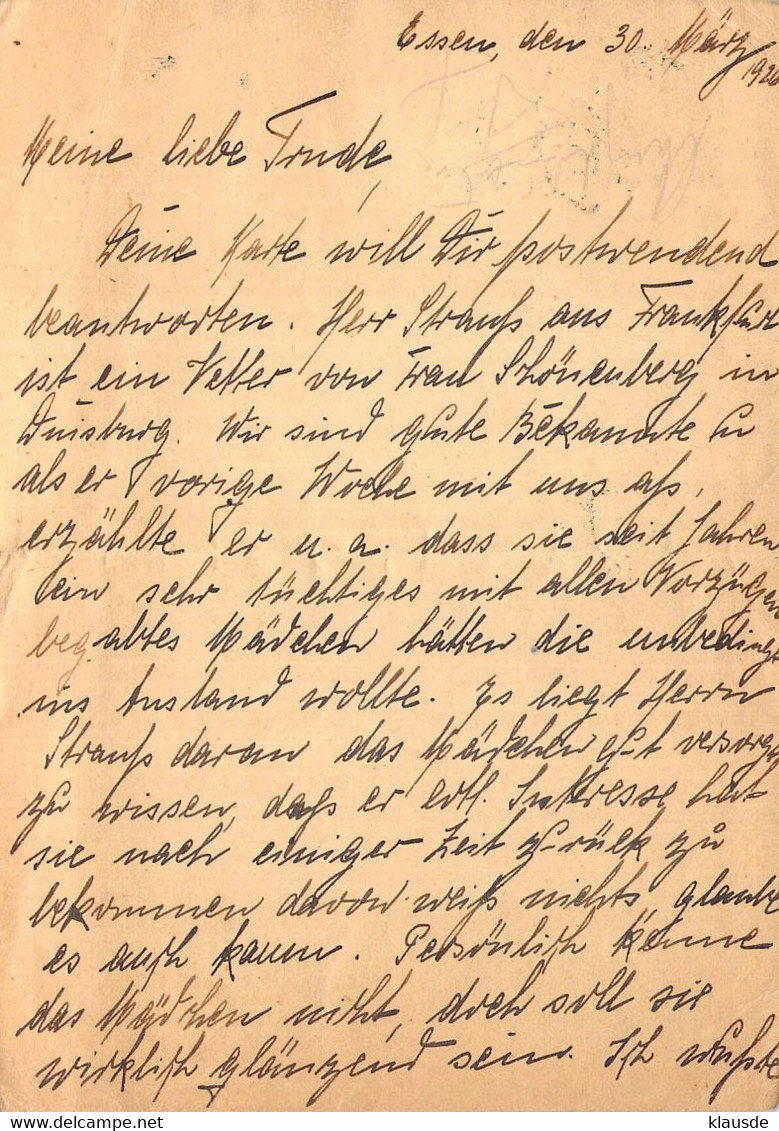 Essen, den 30. März
1926
Meine liebe Trude,
Deine Karte will Dir postwendend
beantworten. Herr Strauß aus Frankfurt
ist ein Vetter von Frau Schönenberg in
Duisburg. Wir sind gute Bekannte u
als er vorige Woche mit uns aß,
erzählte er u. a. dass sie seit Jahren
ein sehr tüchtiges mit allen Vorzügen
begabtes Mädchen hätten die unbedingt
ins Ausland wollte. Es liegt Herrn
Strauß daran das Mädchen gut versorgt
zu wissen, daß er evtl. Interesse hat
sie nach einiger Zeit zurück zu
bekommen davon weiß nichts, glaube
es auch kaum. Persönlich kenne
das Mädchen nicht, doch soll sie
wirklich glänzend sein. Ich wußte
klausde